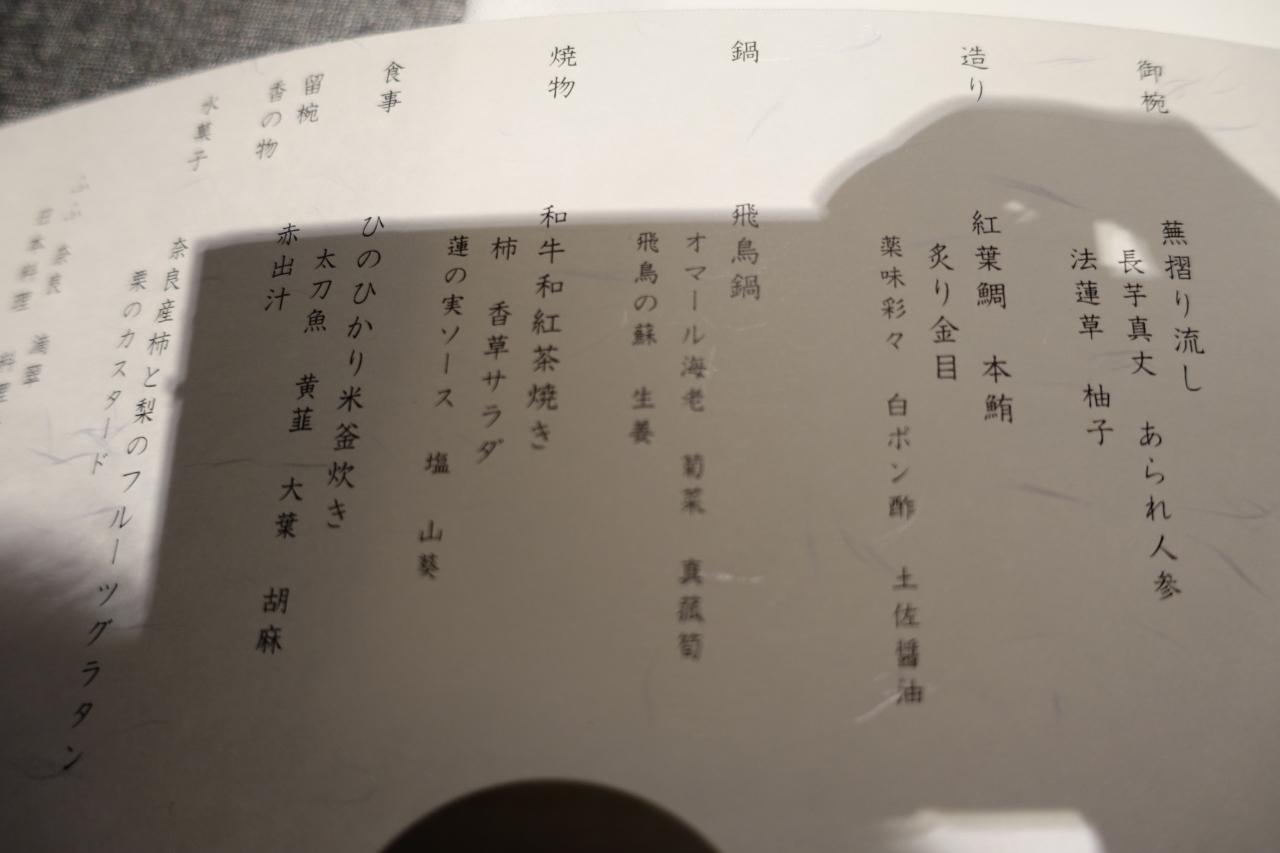 御椀
蕪摺り流し
長芋真丈　あられ人参
法蓮草　柚子
造り
紅葉鯛　本鮪
炙り金目
薬味彩々　白ポン酢　土佐醤油
鍋
飛鳥鍋
オマール海老　菊菜　真菰筍
飛鳥の蘇　生姜
焼物
和牛和紅茶焼き
柿　香草サラダ
蓮の実ソース　塩　山葵
食事
ひのひかり米釜炊き
太刀魚　黄韮　大葉　胡麻
留椀
赤出汁
香の物
水菓子
奈良産柿と梨のフルーツグラタン
栗のカスタード
ふふ 奈良
日本料理
料理